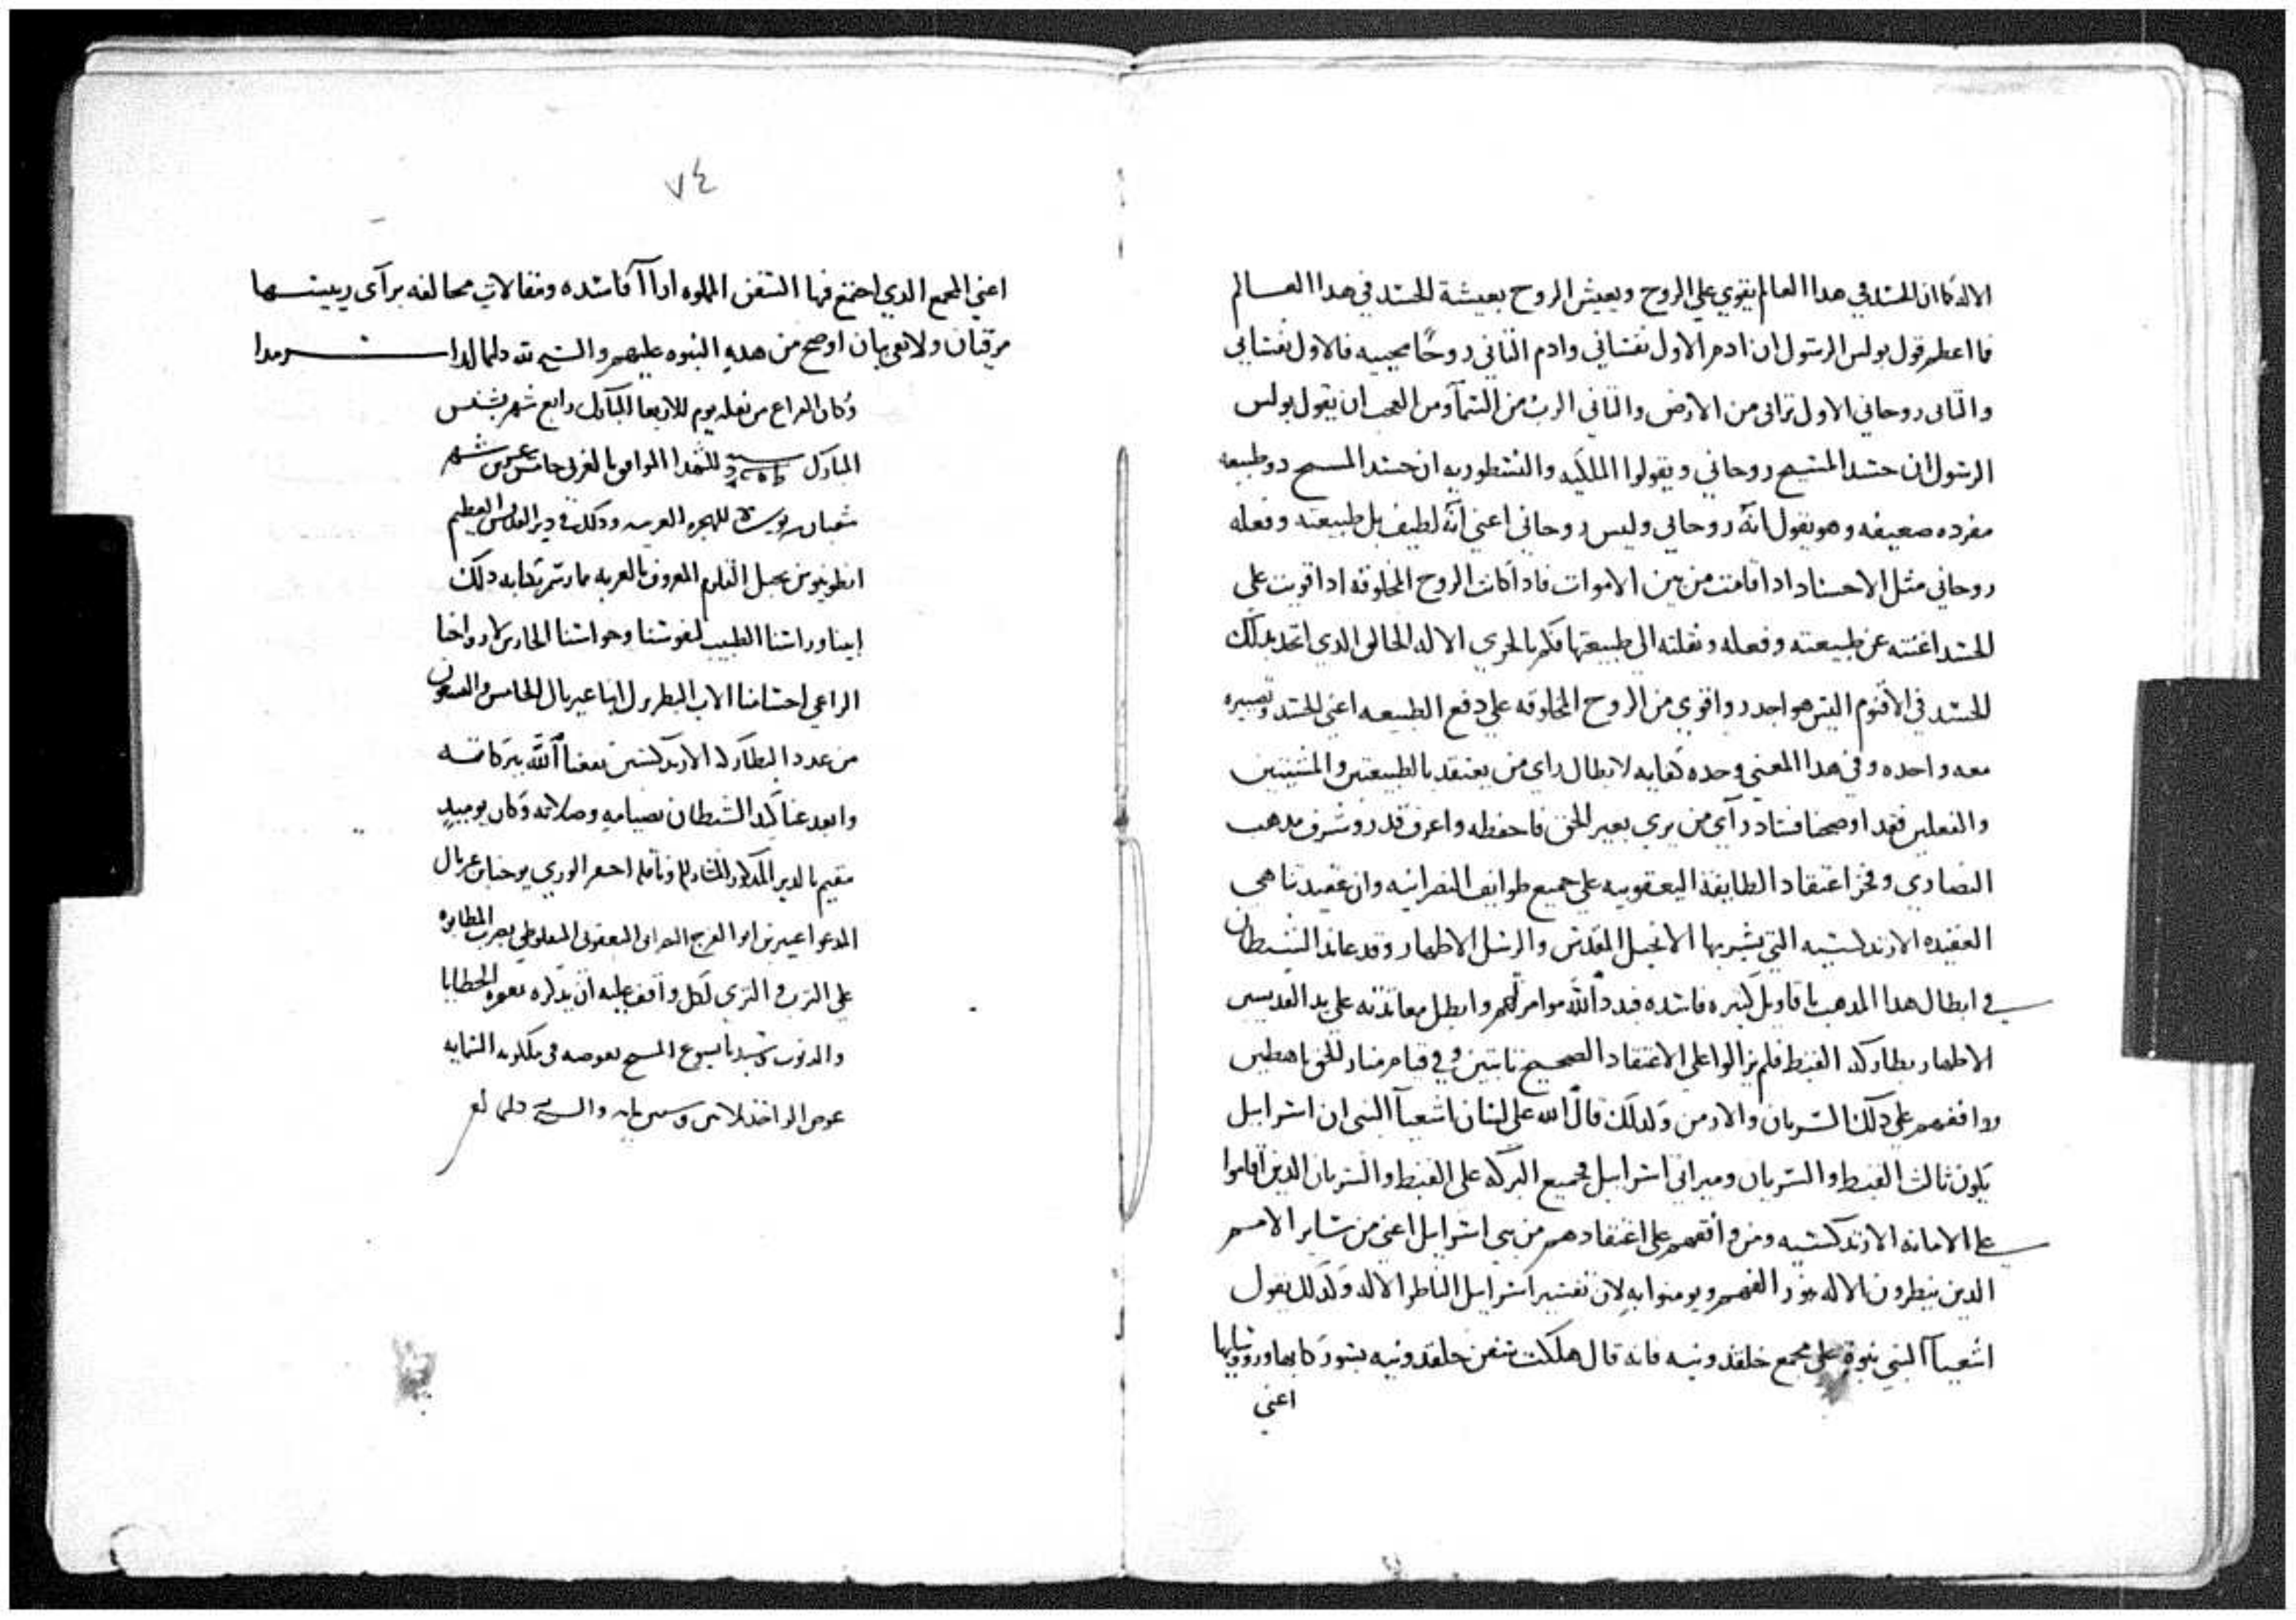 الاله كما ان الجسد في هدا العالم يقوي علي الروح ويعيش الروح بعيشة الجسد في هدا العالم
فما اعظم قول بولس الرسول ان ادم الاول نفساني وادم الثاني روحًا محييه فالاول نفساني
والثاني روحاني الاول ترابي من الارض والثاني الرب من السمآ ومن العجب ان يقول بولس
الرسول ان جسد المسيح روحاني ويقولوا الملكيه والنسطوريه ان جسد المسيح دو طبيعه
مفرده ضعيفه وهو يقول انه روحاني وليس روحاني اعني انه لطيف بل طبيعته وفعله
روحاني مثل الاجساد ادا قامت من بين الاموات فادا كانت الروح المخلوقه ادا قويت علي
الجسد اغنته عن طبيعته وفعله ونقلته الي طبيعتها فكم بالحري الاله الخالق الدي اتحد بدلك
الجسد في الاقنوم اليس هو اجدر واقوي من الروح المخلوقه علي دفع الطبيعه اعني الجسد وتصييره
معه واحده وفي هدا المعني وحده كفايه لابطال راي من يعتقد بالطبيعتين والمشيتين
والفعلين فقد اوضحنا فساد رآي من يري بغير الحق فاحفظه واعرف قدر وشرف مدهب
النصاري وفخر اعتقاد الطايفة اليعقوبيه علي جميع طوايف النصرانيه وان عقيدتنا هي
العقيده الارتدكسيه التي بشر بها الانجيل المقدس والرسل الاطهار وقد عاند الشيطان
في ابطال هدا المدهب باقاويل كثيره فاسده فبدد الله موامرتهم وابطل معاندته علي يد القديسين
الاطهار بطاركة القبط فلم يزالوا علي الاعتقاد الصحيح ثابتين وفي قيام منار الحق
ووافقهم علي دلك السريان والارمن ولدلك قال الله علي لسان اشعيآ النبي ان اسراييل
يكون ثالث القبط والسريان وميراثي اسراييل فجميع البركه علي القبط والسريان الدين اقاموا
علي الامانه الارتدكسيه ومن وافقهم علي اعتقادهم من بني اسراييل اعني من ساير الامم
الدين ينظرون الاله بنور الفهم ويومنوا به لان تفسير اسراييل الناظر الاله ولدلك يقول
اشعيآ النبي نبوة علي مجمع خلقدونيه فانه قال هلكت سفن خلقدونيه بسور
اعني
٧٤
اعني المجمع الدي اجتمع فيها السفن المملوه ارآآ فاسده ومقالات مخالفه برآي رييسها
مرقيان ولا بقي بيان اوضح من هده النبوه عليهم والسبح لله دايما ابدا سرمدا
وكان الفراغ من نقله يوم الاربعا المبارك رابع شهر بشنس
المبارك للشهدا الموافق بالعربي خامس عشر شهر
شعبان للهجره العربيه ودلك في دير القديس العظيم
انطونيوس بجبل القلزم المعروف بالعربه مما رسم بكتابه دلك
ابينا وراسنا الطبيب لنفوسنا وحواسنا الحارس لارواحنا
الراعي اجسامنا الاب البطرك انبا غبريال الخامس والتسعون
من عدد البطاركه الارتدكسيين نفعنا الله ببركاته
وابعد عنا كيد الشيطان بصيامه وصلاته وكان يوميدٍ
مقيم بالدير المدكور وناقله احقر الوري يوحنا غبريال
المدعوا عبيد بن ابو الفرج النصراني اليعقوبي المنفلوطي يضرب المطانوه
علي الترب والثري لكل واقف عليه ان يدكره بغفره الخطايا
والدنوب وسيدنا يسوع المسيح يعوضه في ملكوته السمايه
عوض الواحد تلاتين وستين ومايه والسبح دايما لله